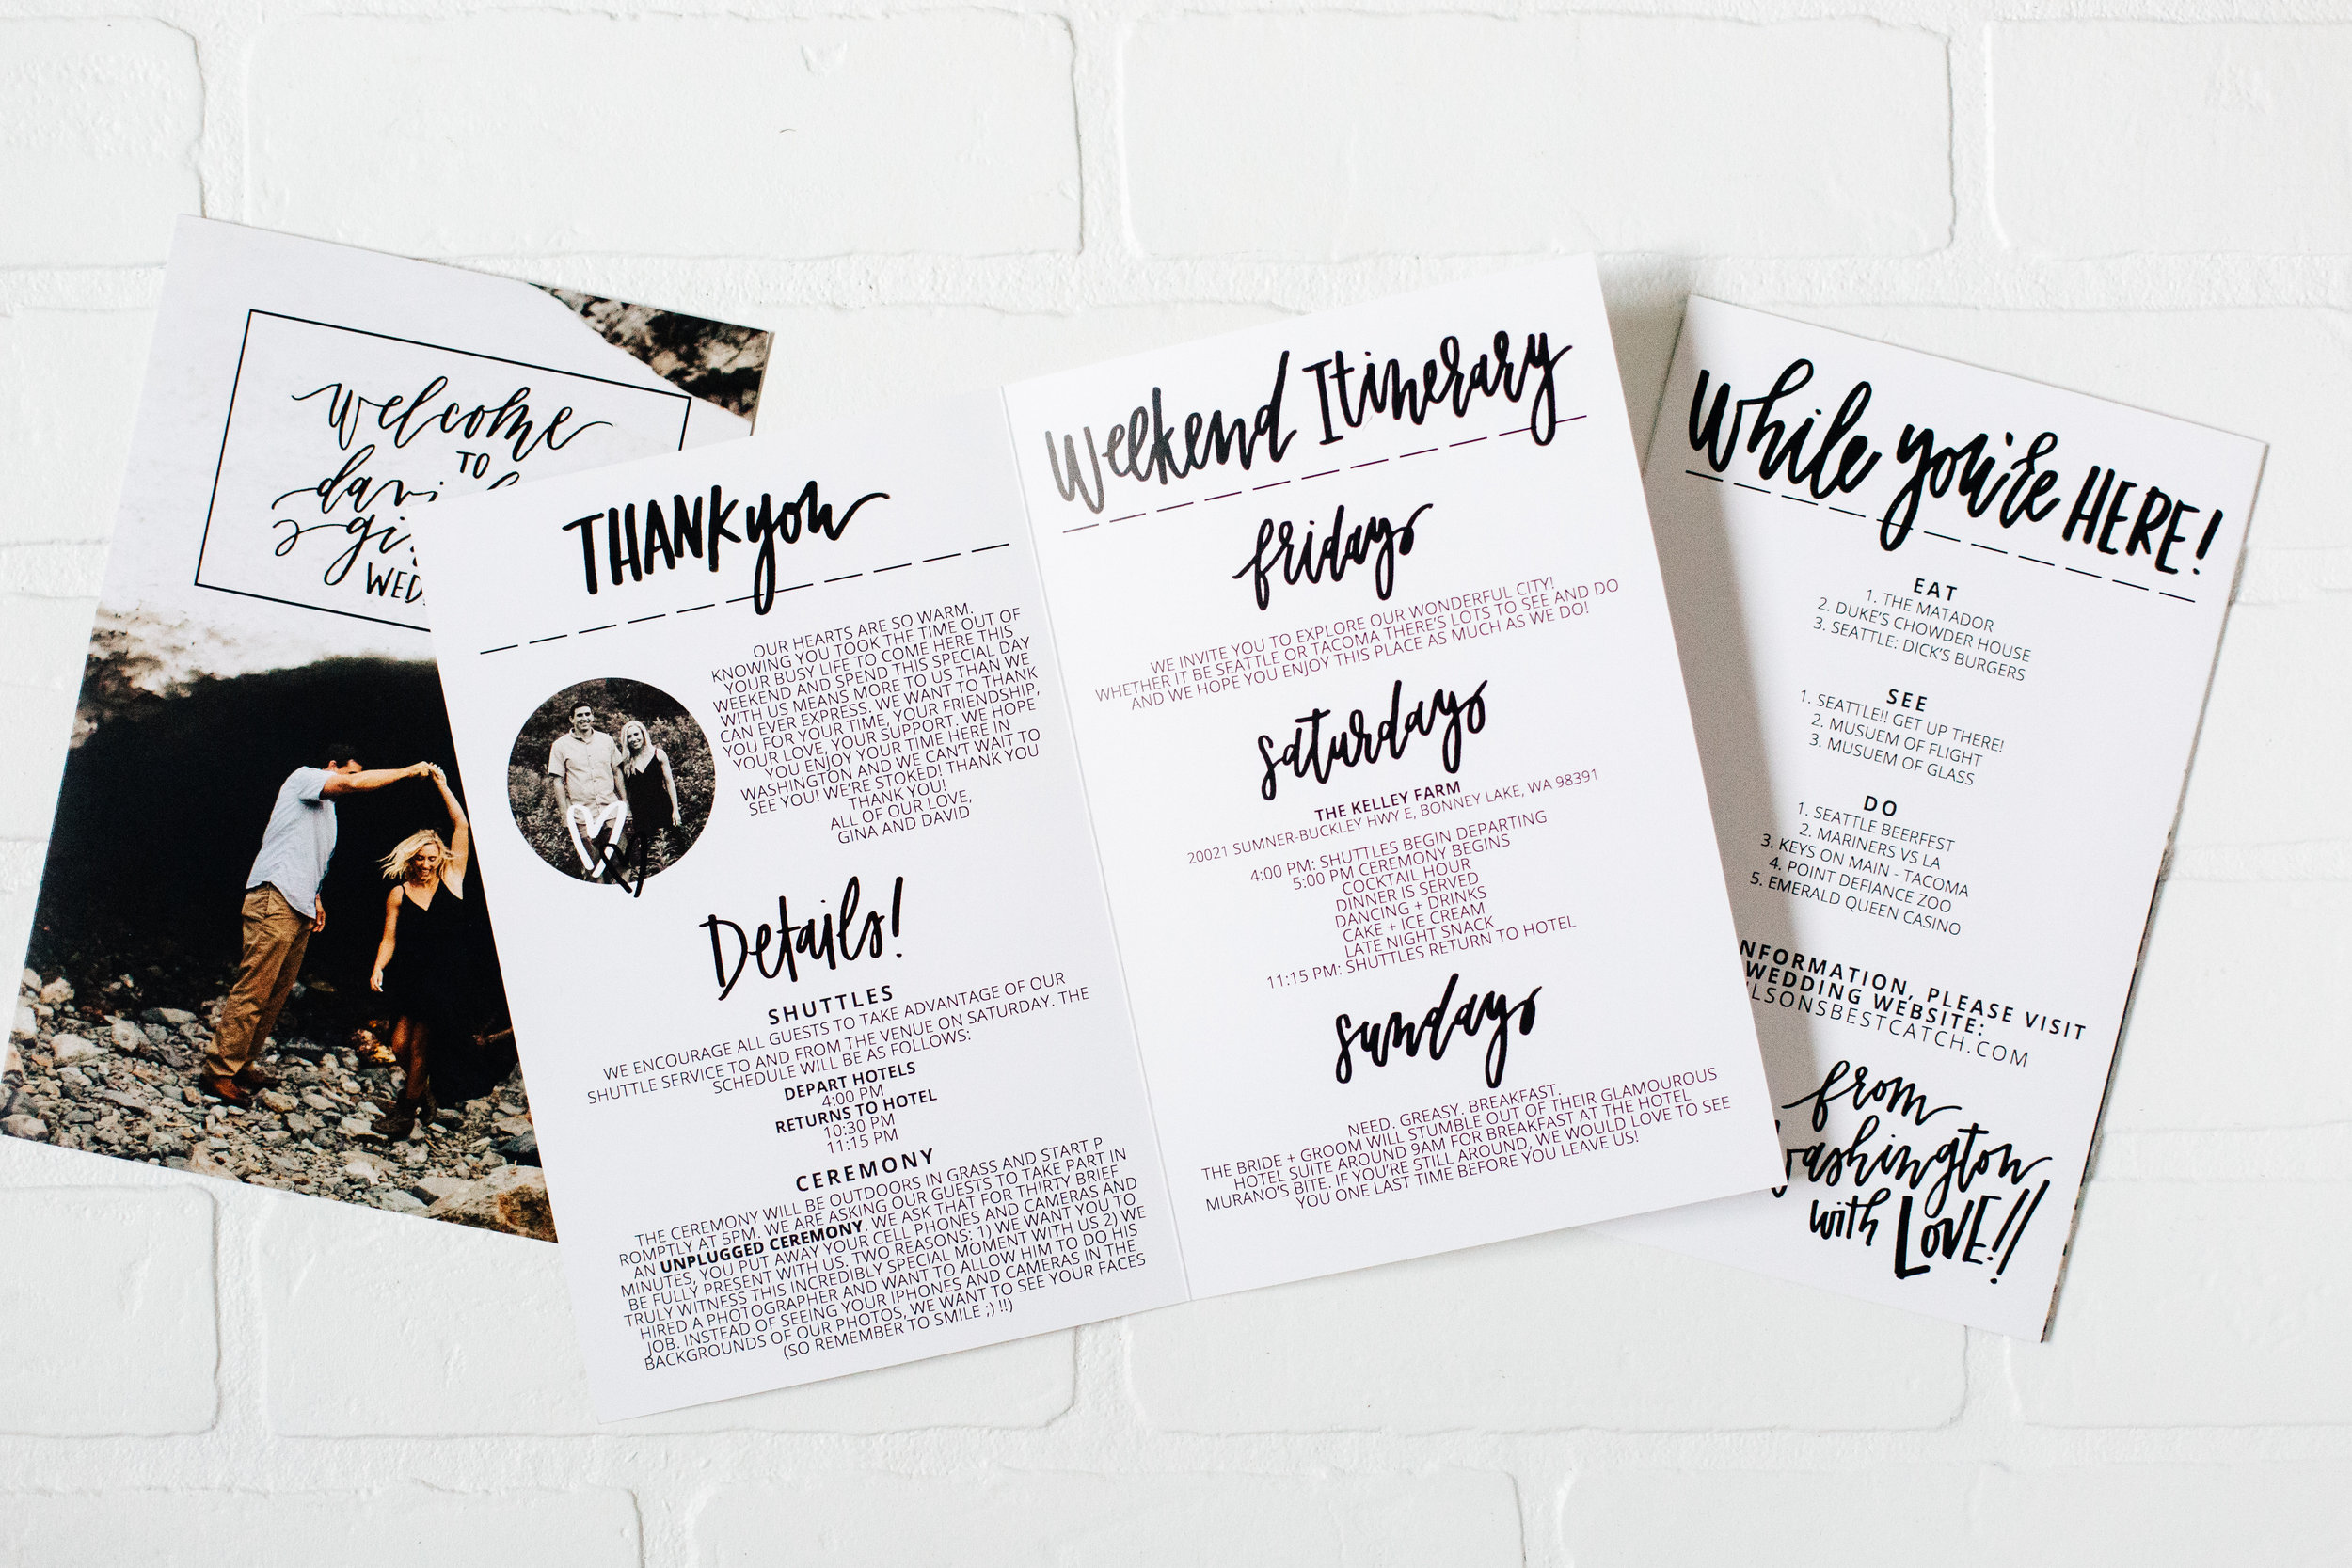 welcome
TO
THANK you
OUR HEARTS ARE SO WARM.
KNOWING YOU TOOK THE TIME OUT OF
YOUR BUSY LIFE TO COME HERE THIS
WEEKEND AND SPEND THIS SPECIAL DAY
WITH US MEANS MORE TO US THAN WE
CAN EVER EXPRESS. WE WANT TO THANK
YOU FOR YOUR TIME, YOUR FRIENDSHIP,
YOUR LOVE, YOUR SUPPORT. WE HOPE
YOU ENJOY YOUR TIME HERE IN
WASHINGTON AND WE CAN'T WAIT TO
SEE YOU! WE'RE STOKED! THANK YOU
THANK YOU!
ALL OF OUR LOVE,
GINA AND DAVID
Details!
SHUTTLES
WE ENCOURAGE ALL GUESTS TO TAKE ADVANTAGE OF OUR
SHUTTLE SERVICE TO AND FROM THE VENUE ON SATURDAY. THE
SCHEDULE WILL BE AS FOLLOWS:
DEPART HOTELS
4:00 PM
RETURNS TO HOTEL
10:30 PM
11:15 PM
CEREMONY
THE CEREMONY WILL BE OUTDOORS IN GRASS AND START P
ROMPTLY AT 5PM. WE ARE ASKING OUR GUESTS TO TAKE PART IN
AN UNPLUGGED CEREMONY. WE ASK THAT FOR THIRTY BRIEF
MINUTES, YOU PUT AWAY YOUR CELL PHONES AND CAMERAS AND
BE FULLY PRESENT WITH US. TWO REASONS: 1) WE WANT YOU TO
TRULY WITNESS THIS INCREDIBLY SPECIAL MOMENT WITH US 2) WE
HIRED A PHOTOGRAPHER AND WANT TO ALLOW HIM TO DO HIS
JOB. INSTEAD OF SEEING YOUR IPHONES AND CAMERAS IN THE
BACKGROUNDS OF OUR PHOTOS, WE WANT TO SEE YOUR FACES
(SO REMEMBER TO SMILE ;) !!)
Weekend Itinerary
friday
WE INVITE YOU TO EXPLORE OUR WONDERFUL CITY!
WHETHER IT BE SEATTLE OR TACOMA THERE'S LOTS TO SEE AND DO
AND WE HOPE YOU ENJOY THIS PLACE AS MUCH AS WE DO!
saturday
THE KELLEY FARM
20021 SUMNER-BUCKLEY HWY E, BONNEY LAKE, WA 98391
4:00 PM: SHUTTLES BEGIN DEPARTING
5:00 PM CEREMONY BEGINS
COCKTAIL HOUR
DINNER IS SERVED
DANCING + DRINKS
CAKE + ICE CREAM
LATE NIGHT SNACK
11:15 PM: SHUTTLES RETURN TO HOTEL
sunday
NEED. GREASY. BREAKFAST.
THE BRIDE + GROOM WILL STUMBLE OUT OF THEIR GLAMOUROUS
HOTEL SUITE AROUND 9AM FOR BREAKFAST AT THE HOTEL
MURANO'S BITE. IF YOU'RE STILL AROUND, WE WOULD LOVE TO SEE
YOU ONE LAST TIME BEFORE YOU LEAVE US!
While you're HERE!
EAT
1. THE MATADOR
2. DUKE'S CHOWDER HOUSE
3. SEATTLE: DICK'S BURGERS
SEE
1. SEATTLE!! GET UP THERE!
2. MUSUEM OF FLIGHT
3. MUSUEM OF GLASS
DO
1. SEATTLE BEERFEST
2. MARINERS VS LA
3. KEYS ON MAIN - TACOMA
4. POINT DEFIANCE ZOO
5. EMERALD QUEEN CASINO
NFORMATION, PLEASE VISIT
WEDDING WEBSITE:
LSONSBESTCATCH.COM
from
washington
with LOVE!!